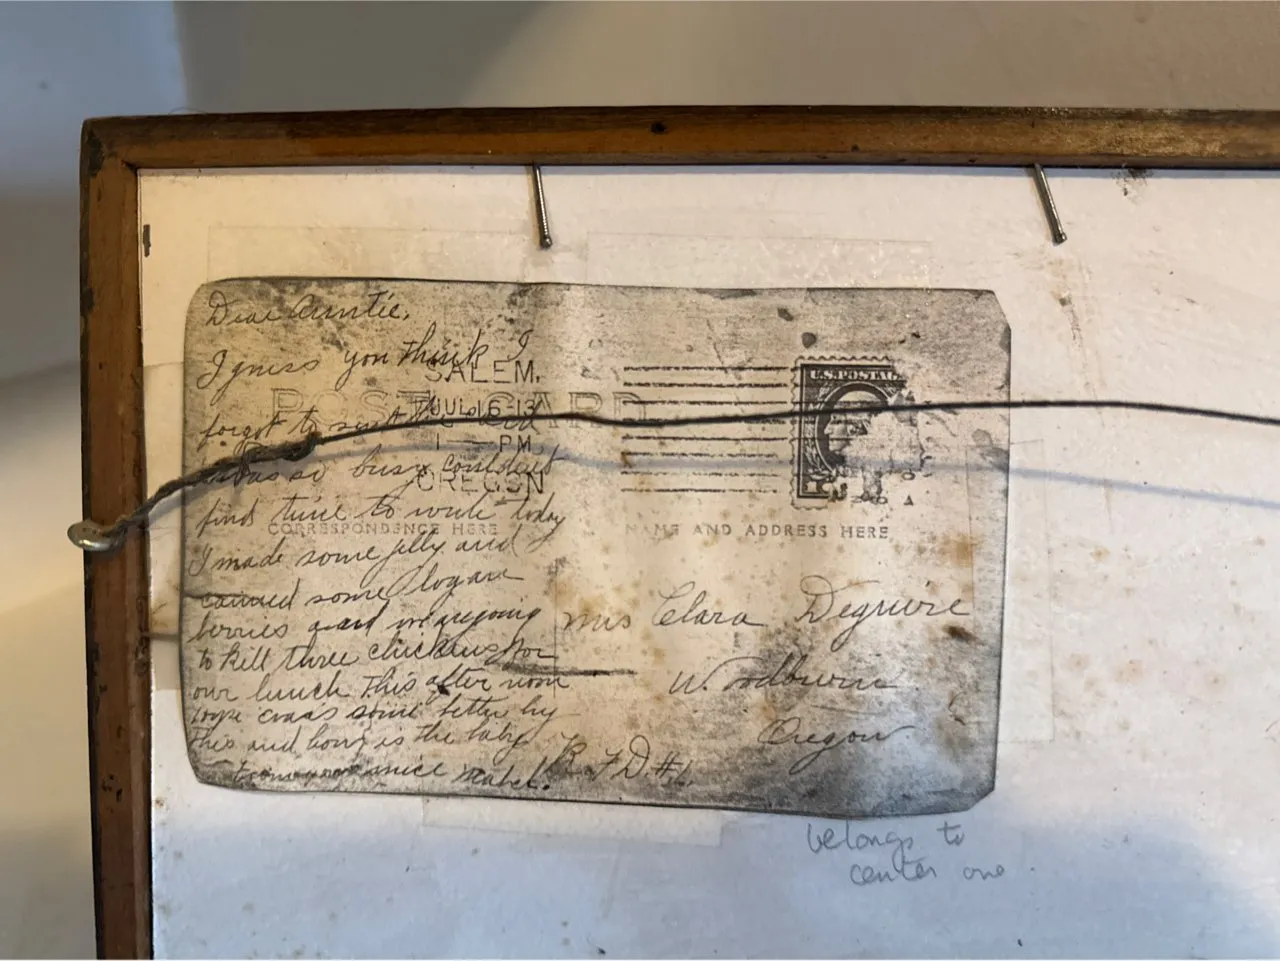 Dear Auntie,
I guess you think I
forgot to
was so busy couldent
find time to write today
I made some jelly and
canned some logan
berries and
to kill three chickens for
our lunch this after noon
some better by
this and how is the baby
From your niece Mabel.
SALEM.
JUL 16-13
1 — PM
OREGON
POST CARD
U.S. POSTAG
1
CORRESPONDENCE HERE
NAME AND ADDRESS HERE
Mrs Clara Deguire
Woodburn
Oregon
R.F.D. #1
belongs to
center one